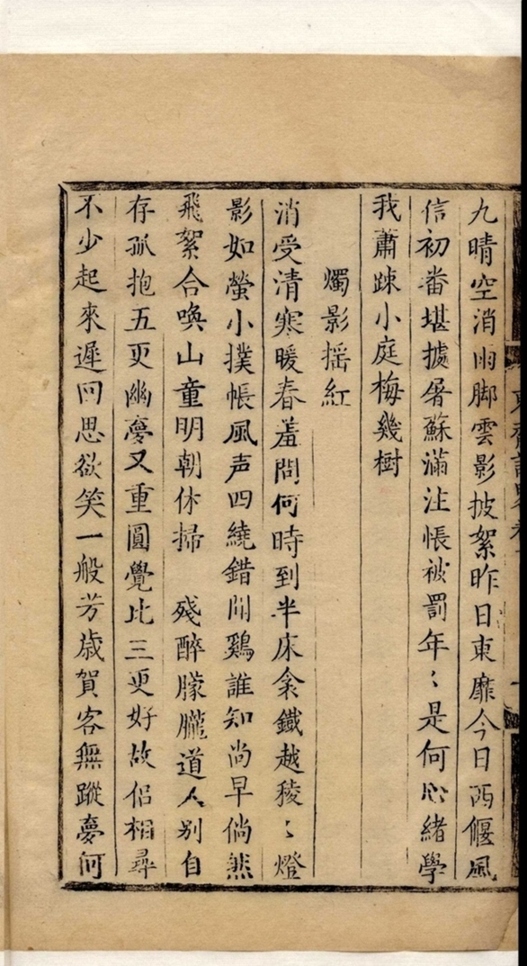 九晴空消雨脚雲影披絮昨日東靡今日西偃風
信初番堪據屠蘇滿注悵被罰年〻是何心緒學
我蕭踈小庭梅幾樹
燭影揺紅
消受清寒暖春羞問何時到半床衾鐵越稜〻燈
影如螢小撲帳風声四繞錯閙鷄誰知尚早倘然
飛絮合喚山童明朝休掃　殘醉朦朧道人別自
存孤抱五更幽夢又重圓覺比三更好故侶相尋
不少起來遲回思欲笑一般芳歲賀客無蹤夢何